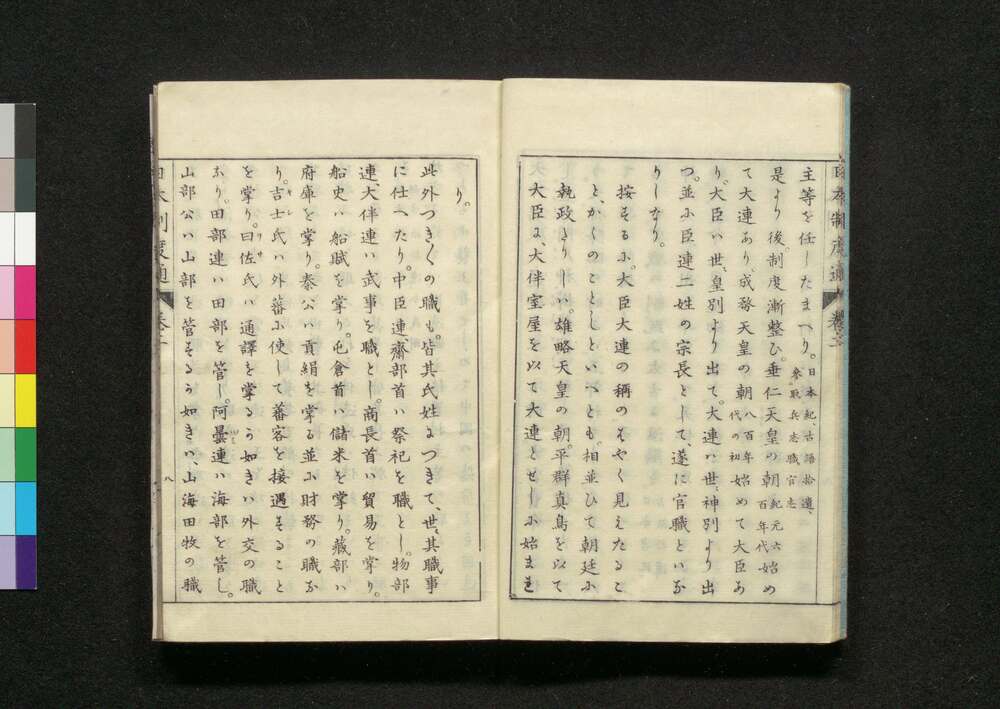 日本制度通 卷一
主等を任したまへり。日本紀、古語拾遺、
參取兵志職官志
是より後。制度漸整ひ。垂仁天皇の朝紀元六
百年代始め
て大連あり、成務天皇の朝八百年
代の初始めて大臣あ
り。大臣ハ世、皇別より出て。大連ハ世、神別より出
つ。並ふ臣連二姓の宗長として、遂に官職といふな
りしなり。
按するふ。大臣大連の稱のはやく見えたるこ
と、かくのことしといへとも。相並ひて朝廷ふ
執政たりしハ。雄略天皇の朝。平群真鳥を以て
大臣に、大伴室屋を以て大連とせしふ始まれ
り。
此外つき〳〵の職も。皆其氏姓につきて、世、其職事
に仕へたり。中臣連齋部首ハ祭祀を職とし。物部
連、大伴連ハ武事を職とし。商長首ハ貿易を掌り。
船史ハ船賦を掌り。屯倉首ハ儲米を掌り。藏部ハ
府庫を掌り。秦公ハ貢絹を掌る並ふ財務の職な
り。吉士氏ハ外蕃ふ使して蕃客を接遇することと
を掌り。曰佐氏ハ通譯を掌るう如きハ外交の職
なり。田部連ハ田部を管し。阿曇連ハ海部を管し。
山部公ハ山部を管するう如きハ、山海田牧の職
日本制度通 卷一
八